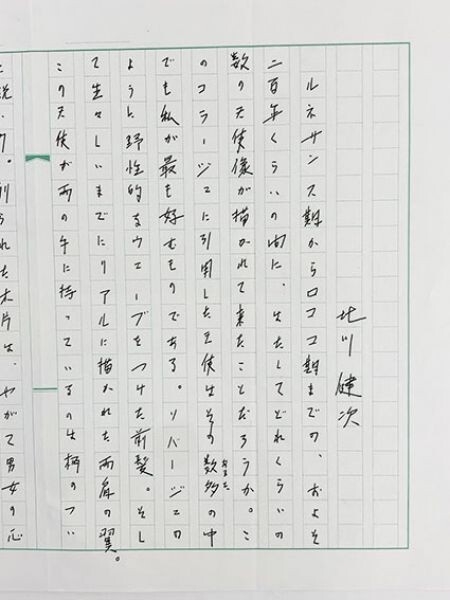 北川健次
ルネサンス期からロココ期までの、およそ
二百年くらいの間に、はたしてどれくらいの
数の天使像が描かれて来たことだろうか。こ
のコラージュに引用した天使はその数多の中
あまた
でも私が最も好むものである。ソバージュの
ように野性的なウエーブをつけた前髪。そし
て生々しいまでにリアルに描かれた両肩の翼。
この天使が両の手に持っているのは柄のつい
削られた木片は、やがて男女の心